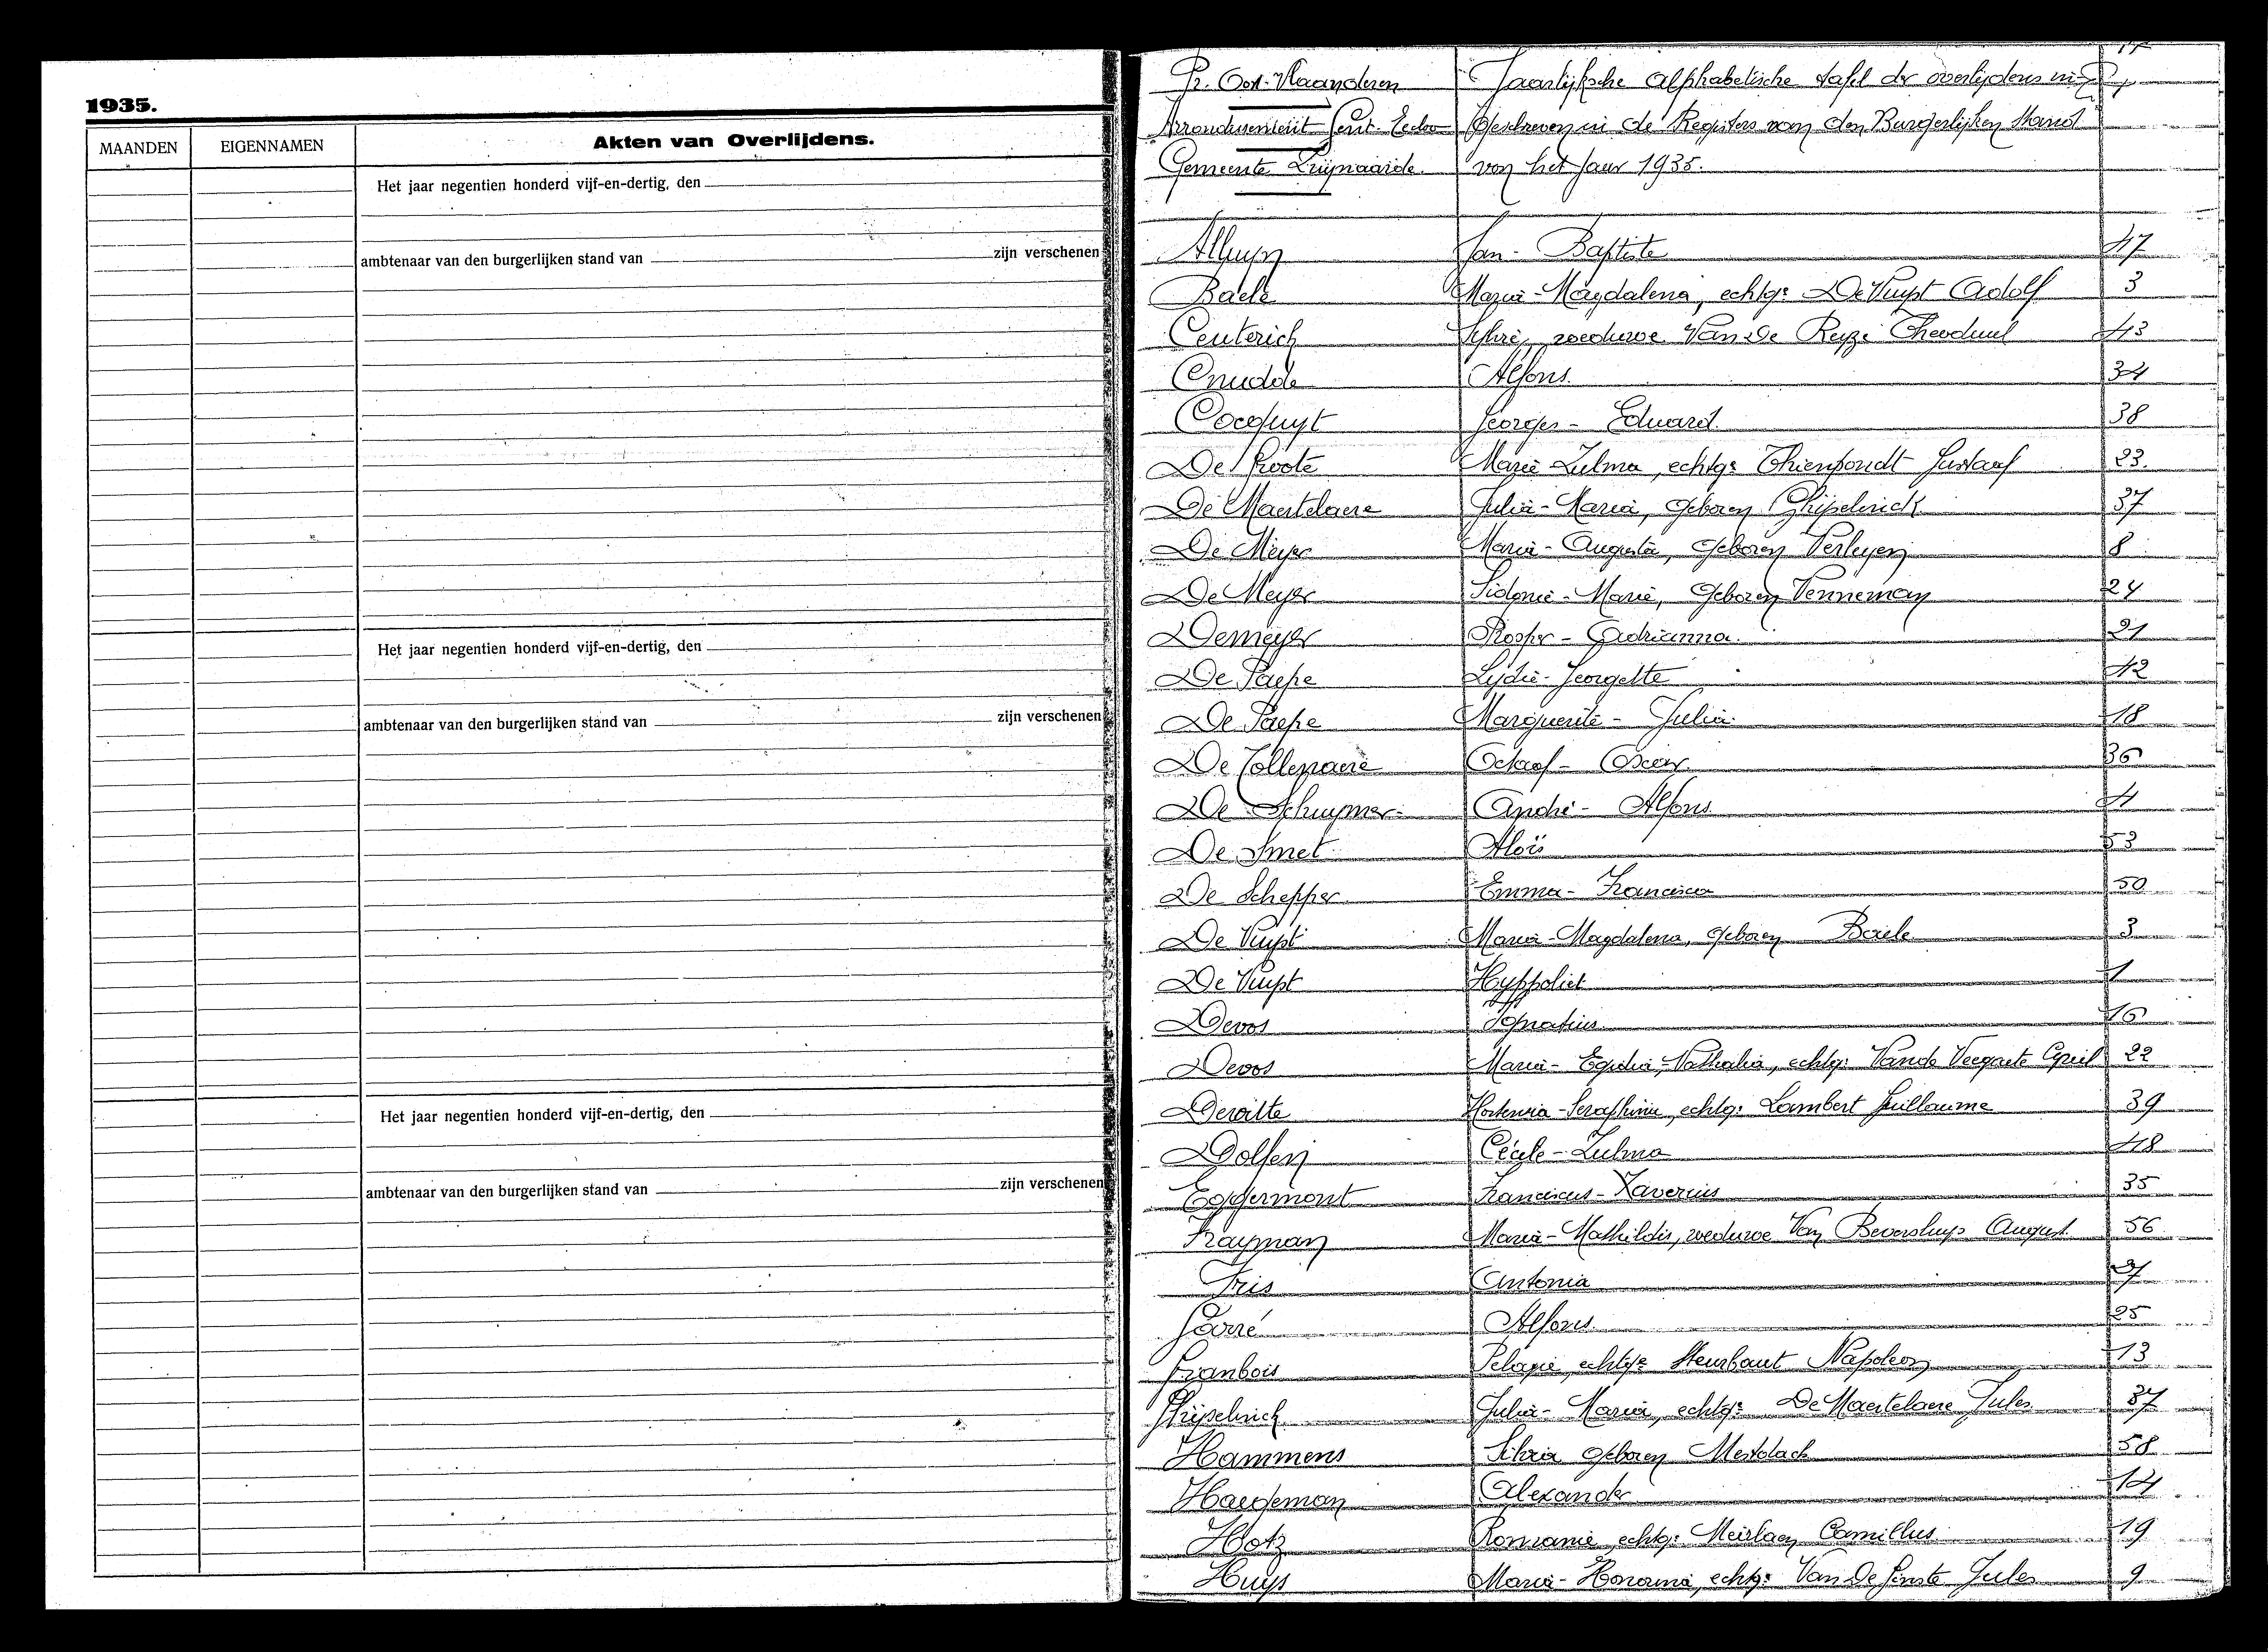 1935.
MAANDEN EIGENNAMEN Akten van Overlijdens.
Het jaar negentien honderd vijf-en-dertig, den
ambtenaar van den burgerlijken stand van zijn verschenen
Het jaar negentien honderd vijf-en-dertig, den
ambtenaar van den burgerlijken stand van zijn verschenen
Het jaar negentien honderd vijf-en-dertig, den
ambtenaar van den burgerlijken stand van zijn verschenen
Pr. Oost-Vlaanderen Jaarlijksche alphabetische tafel der overlijdens in-
Arrondissement Gent-Eecloo geschreven in de Registers van den Burgerlijken Stand
Gemeente Zwijnaarde van het Jaar 1935.
Alluyn Jan-Baptiste 47
Baele Maria-Magdalena, echtge De Vuyst Adolf 3
Ceuterick weduwe Van De Reyze Theoduul 43
Cnudde Alfons 34
Cocquyt Georges-Eduard 38
De Groote Marie Zulma, echtge Thienpondt Gustaaf 23
De Maertelaere Julia-Maria, geboren Ghijselinck 37
De Meyer Maria-Augusta, geboren Verleyen 8
De Meyer Sidonie-Marie, geboren Venneman 24
Demeyer Prosper-Adrianna 21
De Paepe Lydie-Georgette 42
De Paepe Marguerite-Julia 18
De Tollenaere Octaaf-Oscar 36
De Schuymer André-Alfons 4
De Smet Aloïs 53
De Schepper Emma-Francisca 50
De Vuyst Maria-Magdalena, geboren Baele 3
De Vuyst Hyppoliet 1
Devos Ignatius 16
Devos Maria-Egidia-Nathalia, echtge Vande Veegaete Cyriel 22
Dewitte Hortensia-Seraphina, echtge Lambert Guillaume 39
Dolfen Cécile-Zulma 48
Eggermont Franciscus-Xaverius 35
Frayman Maria-Mathildis, weduwe Van Beversluys August 56
Fris Antonia 27
Gorré Alfons 25
Granbois Pelagie, echtge Steurbaut Napoleon 13
Ghijselinck Julia-Maria, echtge De Maertelaere Jules 37
Hammens Silvia geboren Mestdach 58
Haegeman Alexander 14
Hotz Romanie, echtge Meirlaen Camillus 19
Huys Maria-Honorina, echtge Van De Ginste Jules 9